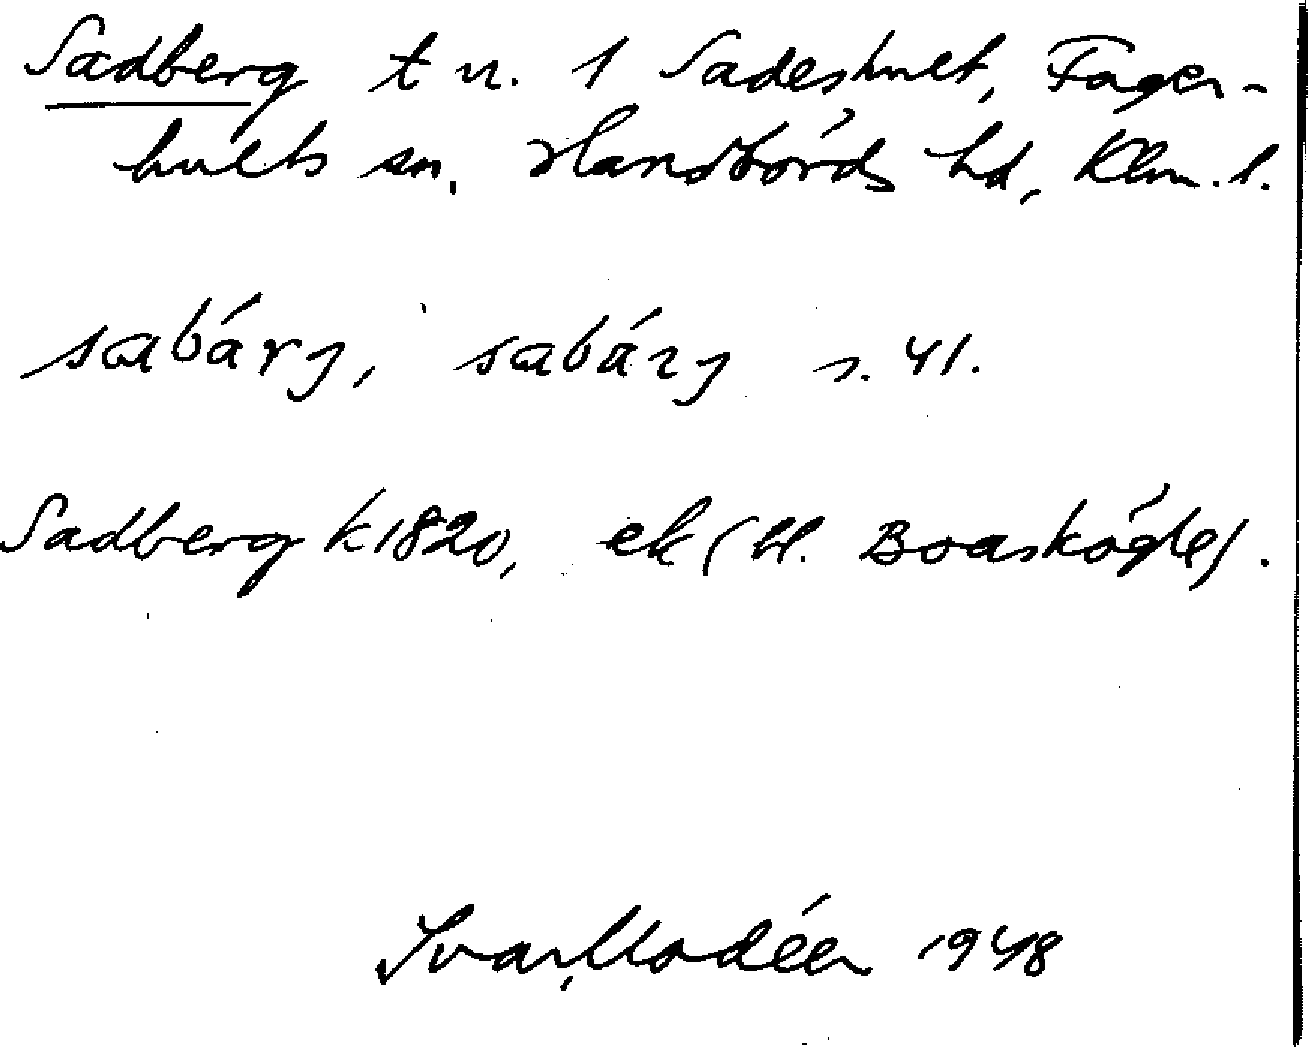 Sadberg t u. 1 Sadeshult, Fager-
hults sn, Handbörds hd, Klm. l.
sabárj, sabárj s. 41.
Sadberg K 1820, ek (H. Boaskögle).
Ivar Modéer 1948